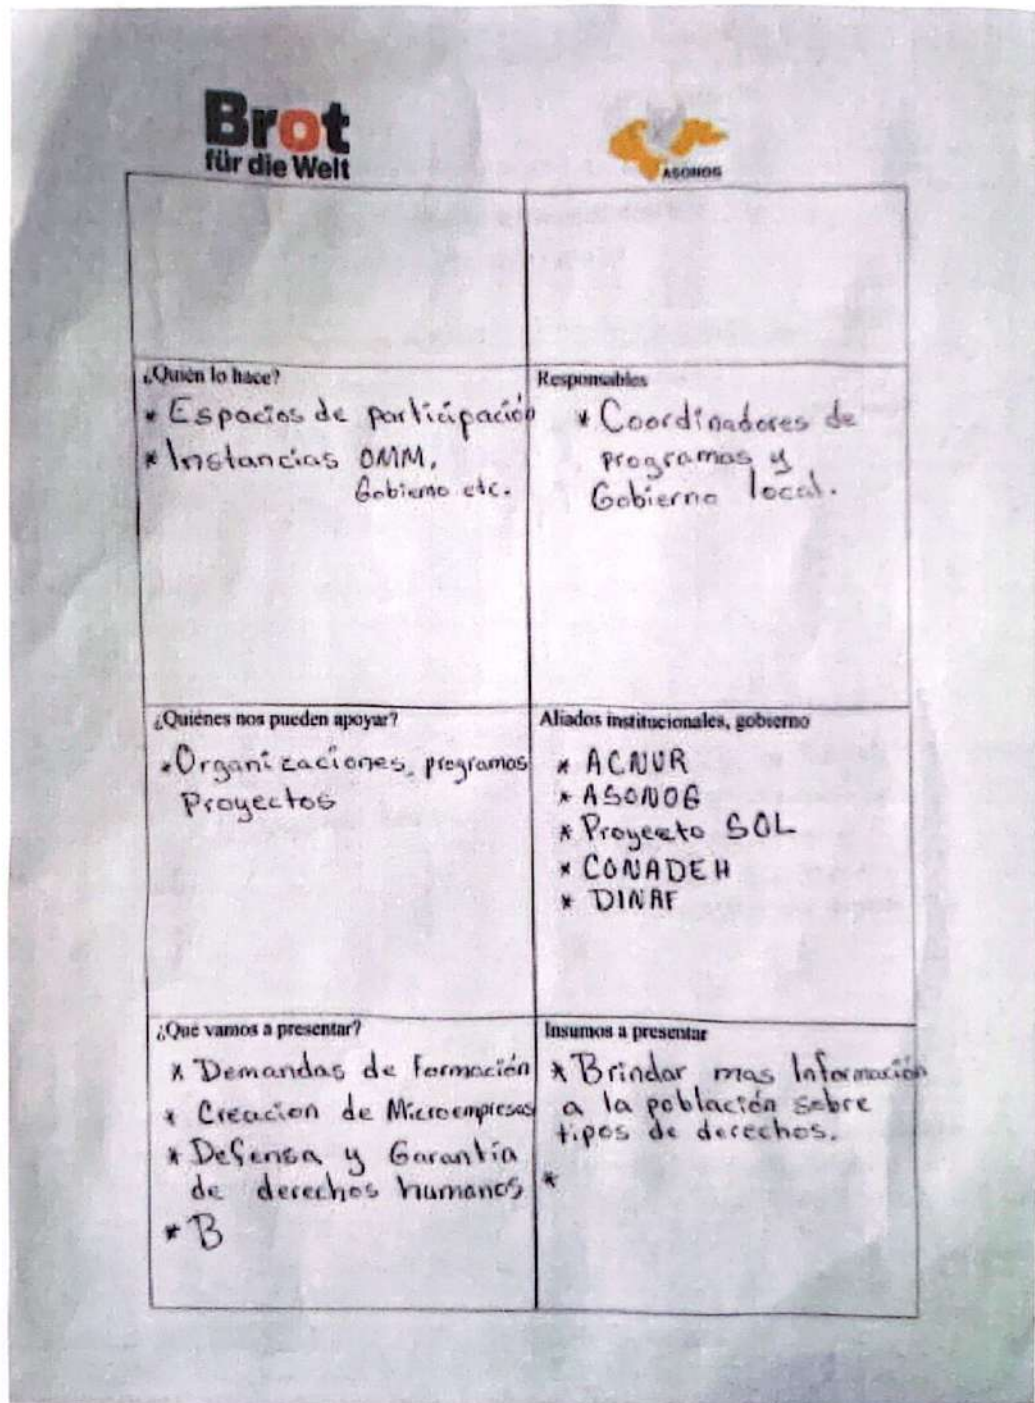 Brot
für die Welt
ASONOG
¿Quién lo hace?
* Espacios de participación
* Instancias OMM,
Gobierno etc.
Responsables
* Coordinadores de
programas y
Gobierno local.
¿Quiénes nos pueden apoyar?
* Organizaciones, programas
Proyectos
Aliados institucionales, gobierno
* ACNUR
* ASONOG
* Proyecto SOL
* CONADEH
* DINAF
¿Qué vamos a presentar?
* Demandas de Formación
* Creacion de Microempresas
* Defensa y Garantía
de derechos humanos
* B
Insumos a presentar
* Brindar mas Información
a la población sobre
tipos de derechos.
*